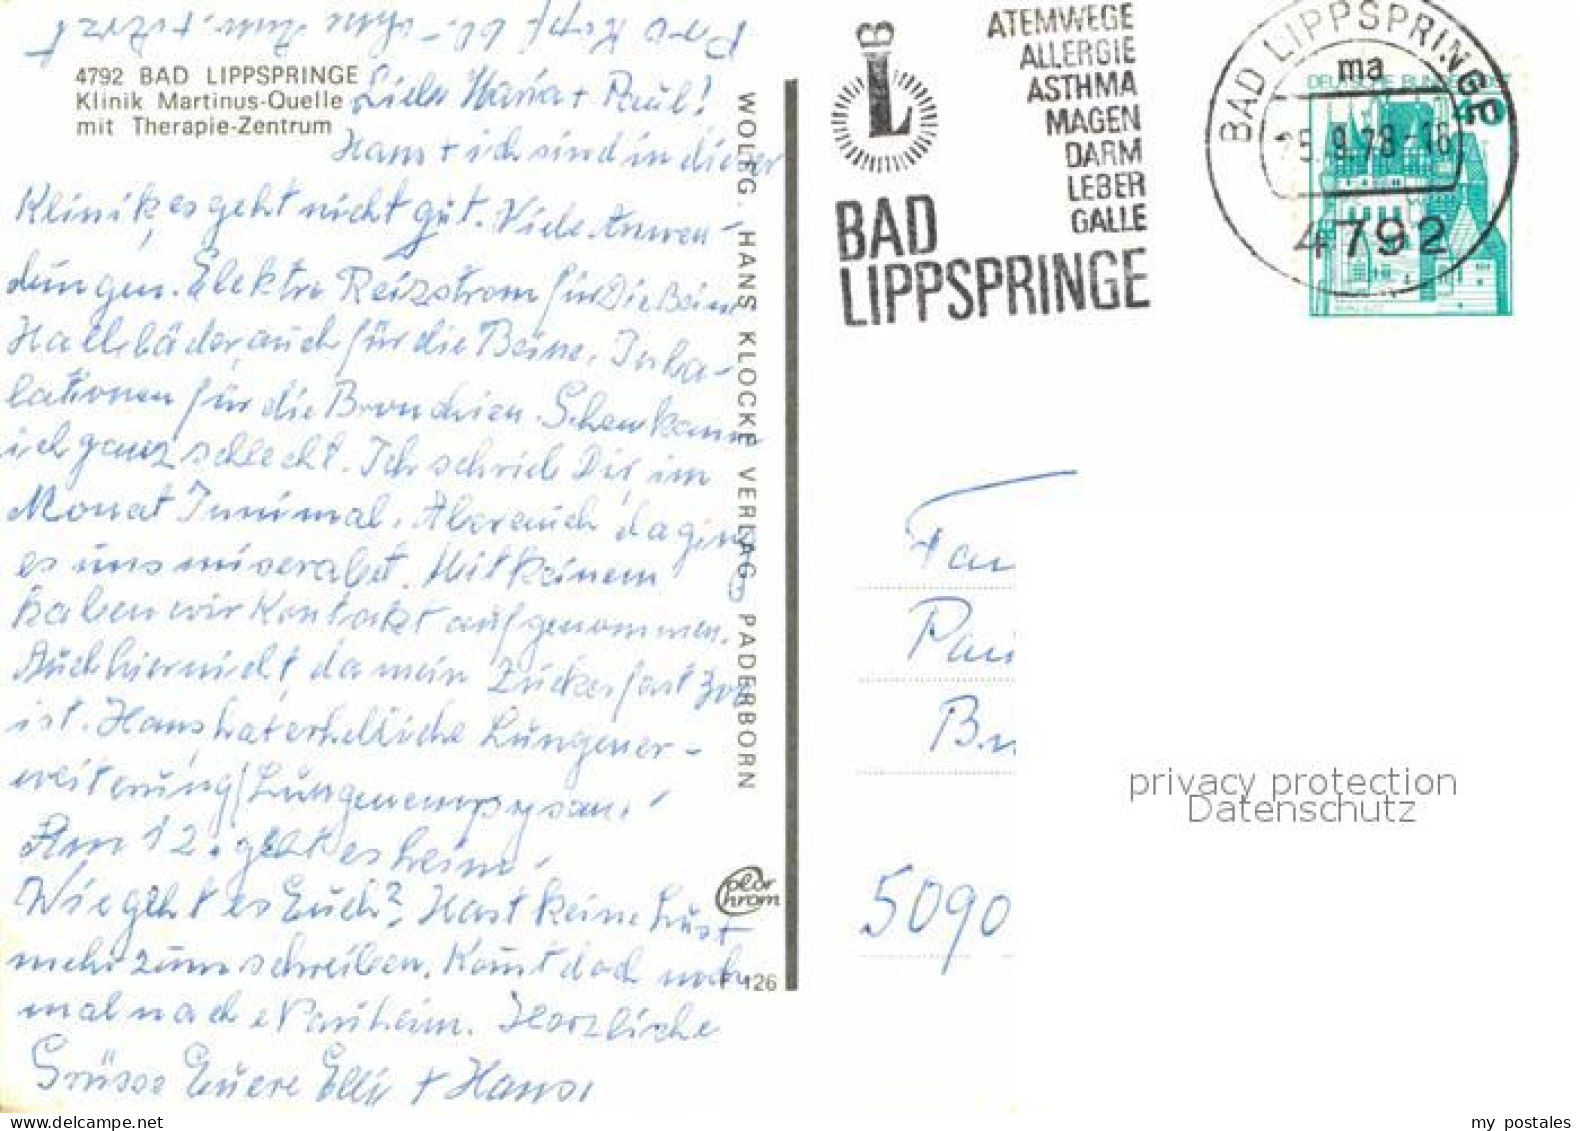 4792 BAD LIPPSPRINGE
Klinik Martinus-Quelle
mit Therapie-Zentrum
Liebe Maria + Paul!
Hans + ich sind in dieser
Klinik, es geht nicht gut. Viele Anwen-
dungen. Elektro Reizstrom für die Beine
Hallbäder, auch für die Beine, Inha-
lationen für die Bronchien. Sehen kann
ich ganz schlecht. Ich schrieb Dir im
Monat Juni mal. Aber auch da ging
es uns miserabel. Mit keinem
haben wir Kontakt aufgenommen.
Auch hier nicht, da mein Zucker fast
ist. Hans hat erhebliche Lungener-
weiterung/Lungenempysem.
Am 12. geht es heim.
Wie geht es Euch? Hast keine Lust
mehr zum schreiben. Kommt doch noch
mal nach Pariheim. Herzliche
Grüsse Euere Elli + Hans
WOLFG. HANS KLOCKE VERLAG PADERBORN
color
chrom
126
BAD
LIPPSPRINGE
ATEMWEGE
ALLERGIE
ASTHMA
MAGEN
DARM
LEBER
GALLE
BAD LIPPSPRINGE
ma
5.9.78-16
4792
DEUTSCHE BUNDESPOST
Fam
Pau
5090
privacy protection
Datenschutz
my postales